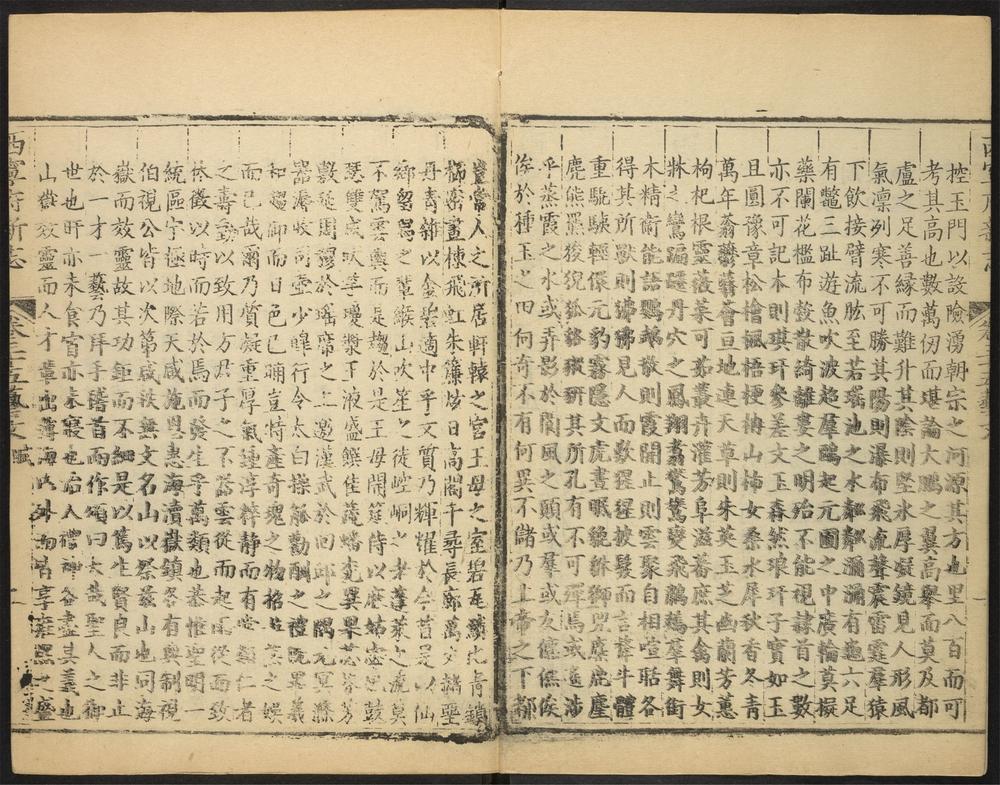 控玉門以設險湧朝宗之河源其方也里八百而可
考其高也數萬仞而堪論大鵬之翼高舉而莫及都
盧之足善緣而難升其陰則堅氷厚凝鏡見人形風
氣凛列寒不可勝其陽則瀑布飛流聲震雷霆羣猿
下飲接臂流肱至若瑶池之水粼粼瀰瀰有龜六足
有鼈三趾遊魚吹波起羣鷗起元圃之中廣輪莫擬
藥闌花檻布縠散綺離婁之明殆不能視隸首之數
亦不可記木則琪玕參差文玉森然琅玕子實如玉
且圓豫章松檜楓梧梗柟山柿女桑水犀秋香冬青
萬年蓊鬱薈亘地連天草則朱英玉芝幽蘭芳蕙
枸杞根靈薇菜可茹叢卉灌芳阜滋蕃庶其禽則女
牀之鸞蹁躚丹穴之鳳翔翥鷟變飛鸘鷞羣舞銜
木精衛能語鸚鵡散則霞開止則雲聚自相喧聒各
得其所獸則狒狒見人而長數猩猩披髮而言犛牛體
重駞駃輕儇元豹霧隱文虎晝眠貔貅獅兕麋麀麈
麂熊羆狻猊狐貉豵豜其所孔有不可殫焉或遙涉
乎蒸霞之水或弄影於閬風之顛或羣或友儦儦俟
俟於種玉之田何奇不有何異不儲乃上帝之下都
豈常人之所居軒轅之宮王母之室碧瓦
楄密畫棟飛虹朱簾焕日高閣千尋長廊萬丈
丹青雜以金碧適中乎文質乃輝耀於今昔是以仙
鄉留舄之輩緱山吹笙之徒崆峒之老蓬萊之流莫
不駕雲輿而是趨於是王母開筵侍以麽姑宓妃鼓
瑟雙成吹笙瓊漿玉液盛饌佳蔬蟠桃異果苾芬芳
敷從周穆於瑶席之上邀漢武於囬邱之隅元冥滌
器蓐收司壷少皥行令太白操觚勸酬之禮既畢羲
和迴御而日色已晡豈特產奇瑰之物招之娛
而已哉爾乃質凝重厚氣鍾淳粹靜而有類仁者
之壽動以致用方君子之不器雲從而起雨從而致
休徵以時而若於焉而發生乎萬類也恭惟聖明一
統區宇極地際天咸施恩惠海瀆嶽鎮各有興制視
伯視公皆以次第咸秩無文名山以祭茲山也同海
嶽而效靈故其功鉅而不細是以篤生賢良而非止
於一才一藝乃拜手稽首而作頌曰大哉聖人之御
世也旰亦未食宵亦未寢也治人禮神各盡其義也
山嶽效靈而人才輩出薄海內外而
西寧府新志
卷三十五藝文 賦